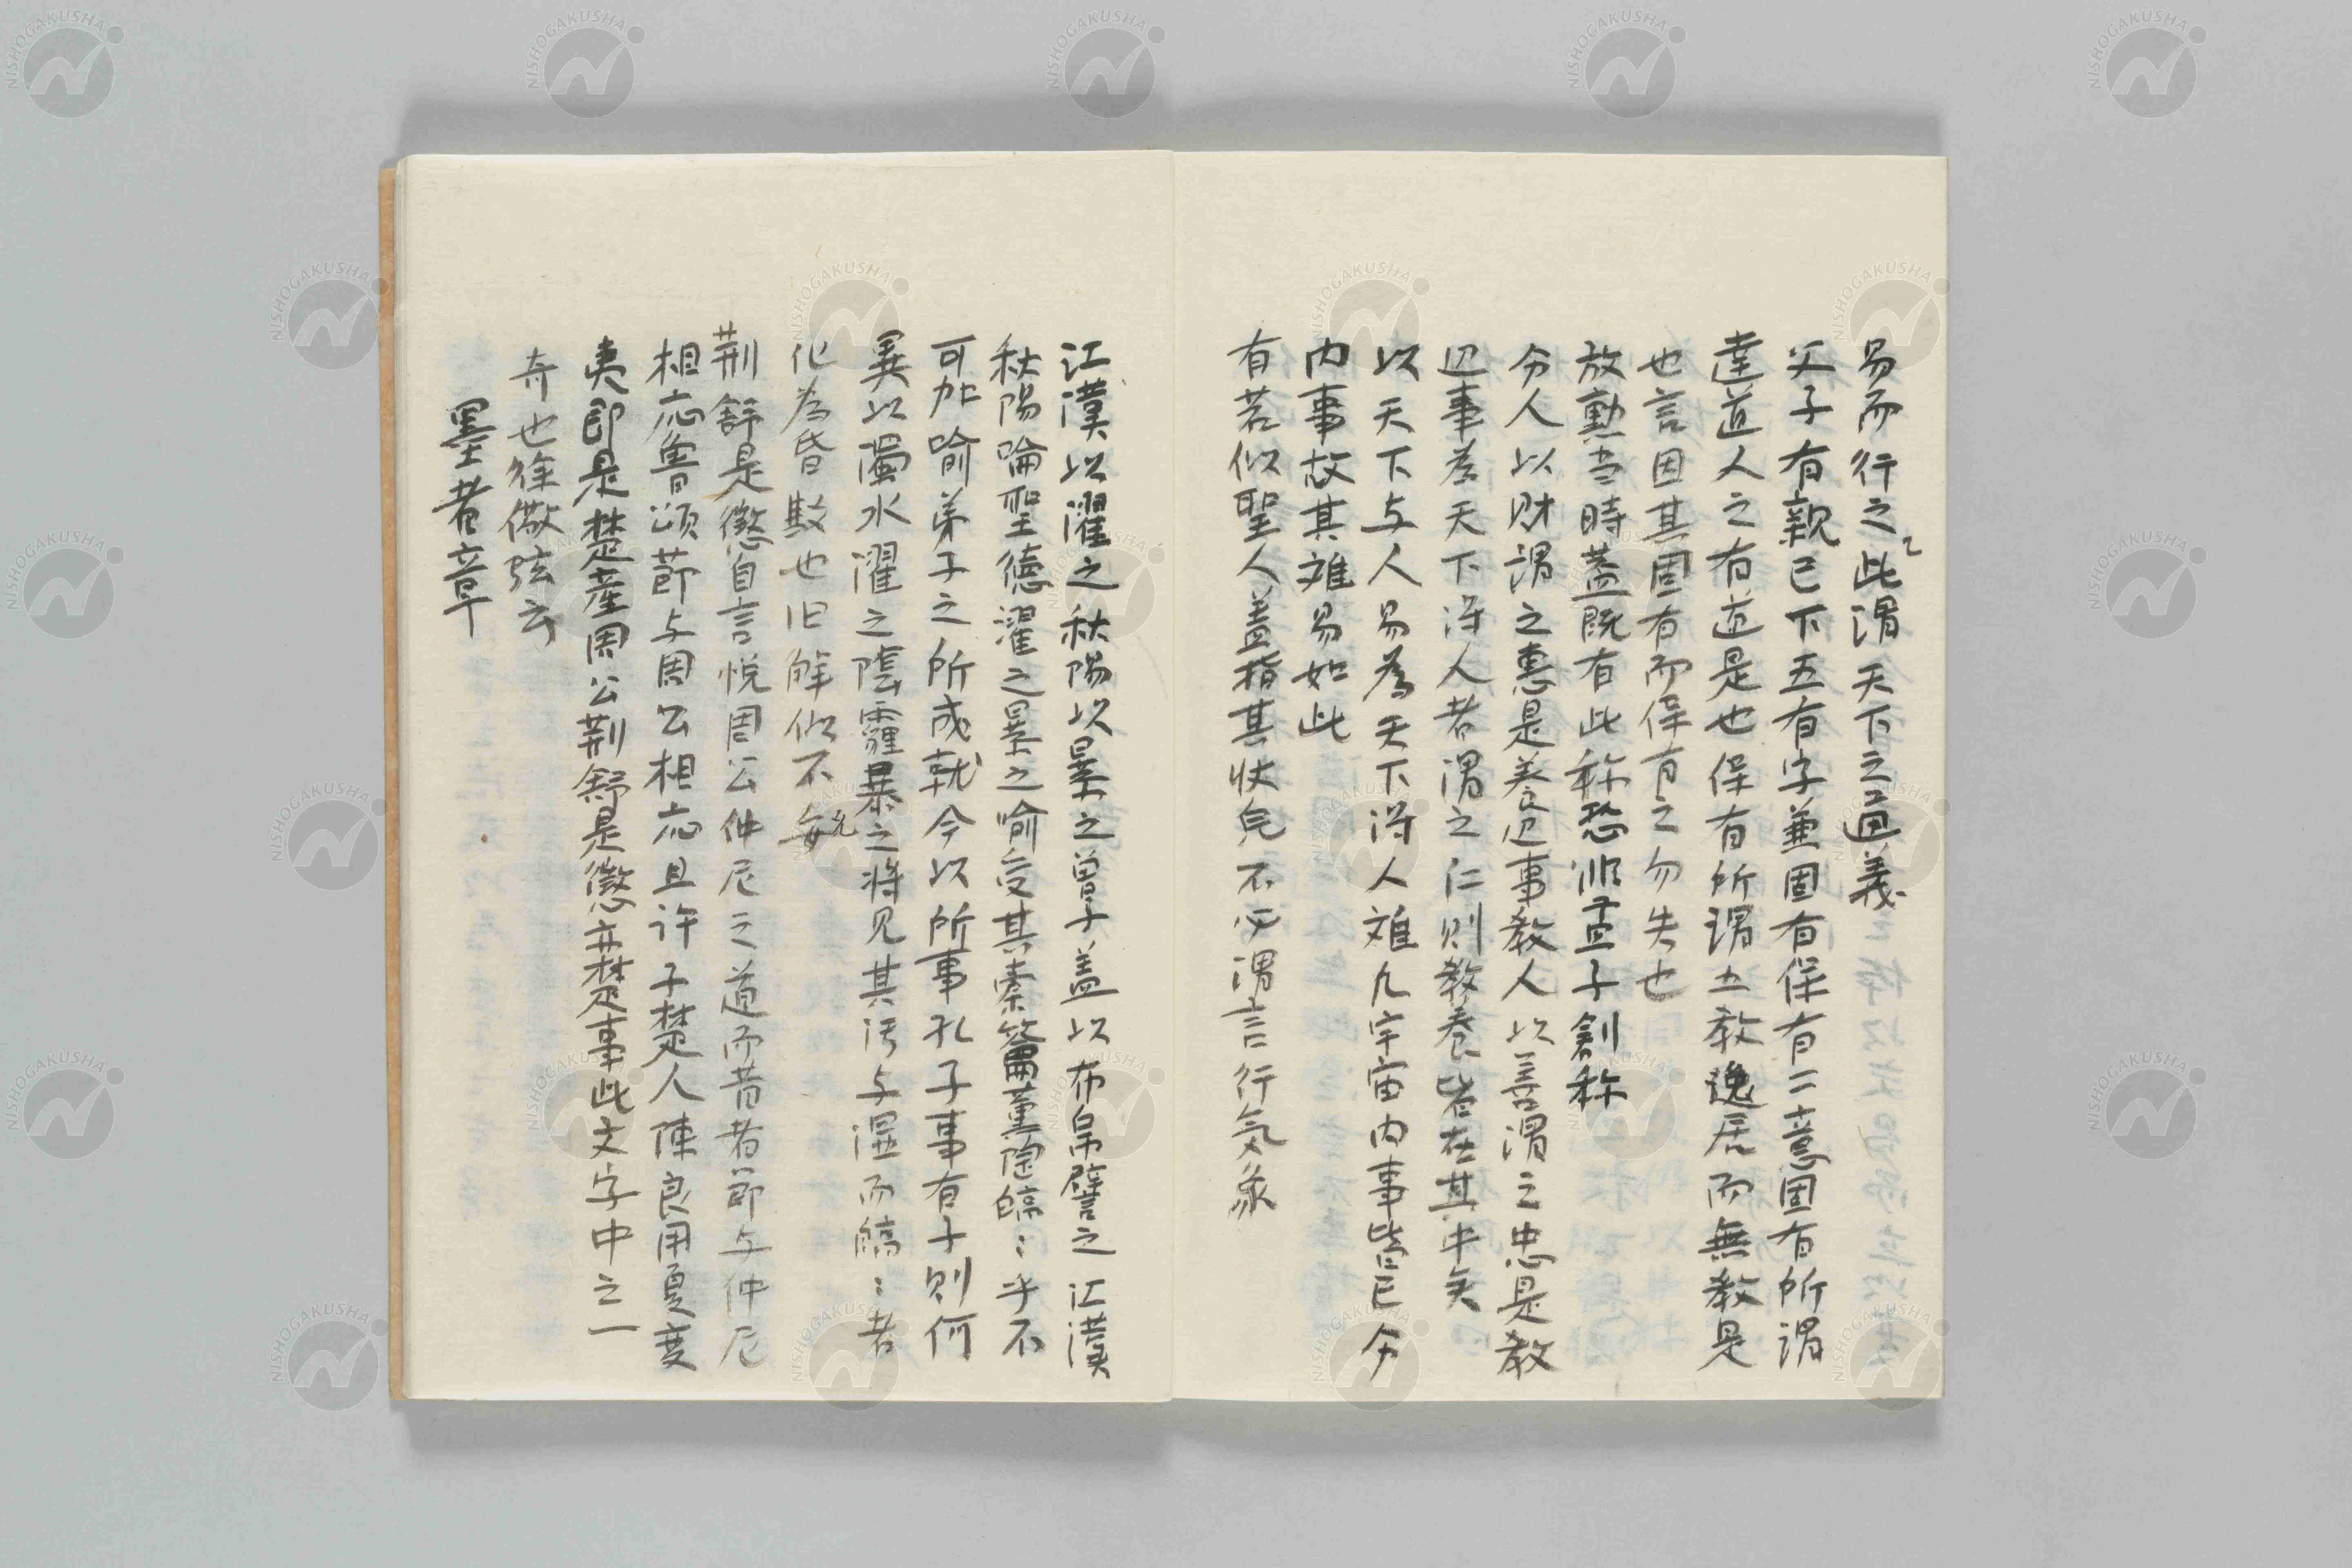 易而行之此謂天下之通義
父子有親已下五有字兼固有保有二意固有所謂
達道人之有道是也保有所謂五教逸居而無教是
也言因其固有而保有之勿失也
放勲当時蓋既有此称恐非孟子創称
分人以財謂之恵是養辺事教人以善謂之忠是教
辺事為天下得人者謂之仁則教養皆在其中矣
以天下与人易為天下得人难凡宇宙内事皆已分
内事故其难易如此
有若似聖人蓋指其状皃不必謂言行気象
江漢以濯之秋陽以暴之曽子蓋以布帛譬之江漢
秋陽喻聖德濯之暴之喻受其槖籥薫陶皜〻乎不
可加喻弟子之所成就今以所事孔子事有子則何
異以濁水濯之陰霾暴之将见其汚与湿而皜〻者
化為昏黩也旧解似不免
荆舒是懲自言悦周公仲尼之道而昔者節与仲尼
相応魯頌節与周公相応且许子楚人陳良用夏変
夷即是楚産周公荆舒是懲亦楚事此文字中之一
奇也徐儆弦云
墨者章
NISHOGAKUSHA